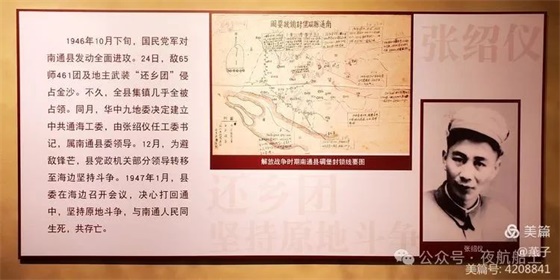 1946年10月下旬，国民党军对
南通县发动全面进攻。24日，敌65
师461团及地主武装“还乡团”侵
占金沙。不久，全县集镇几乎全被
占领。同月，华中九地委决定建立
中共通海工委，由张绍仪任工委书
记，属南通县委领导。12月，为避
敌锋芒，县党政机关部分领导转移
至海边坚持斗争。1947年1月，县
委在海边召开会议，决心打回通
中，坚持原地斗争，与南通人民同
生死，共存亡。
解放战争时期南通县碉堡封锁线要图
张绍仪
还乡团
坚持原地斗争
张绍仪
美篇
@董子
公众号·夜航船工
美篇号：4208841